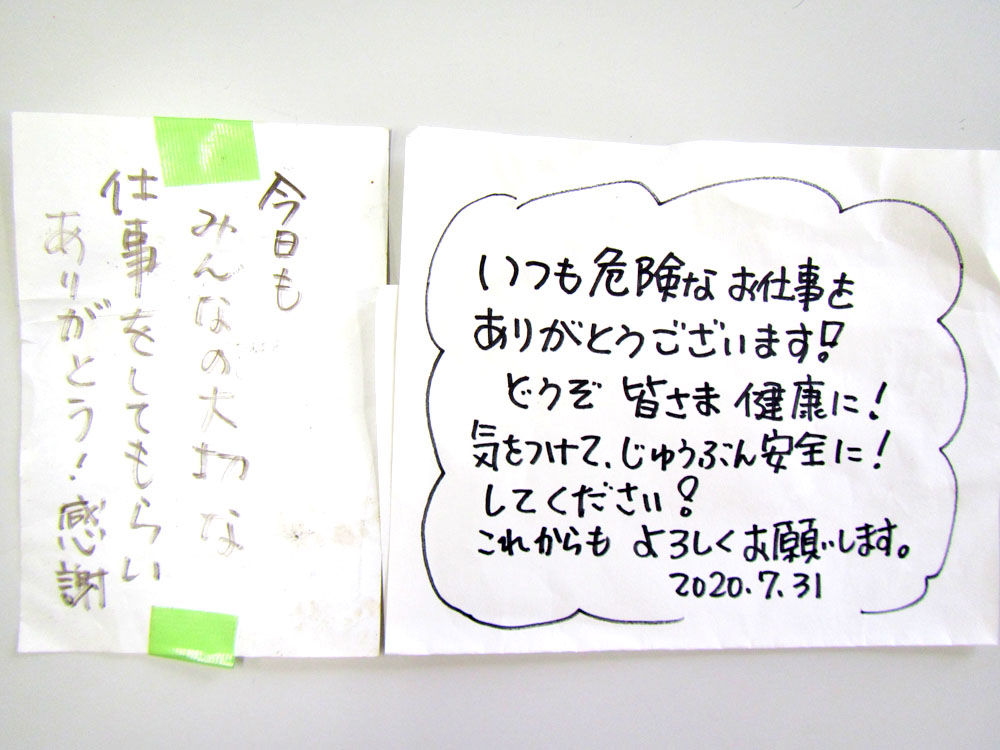 今日も
みんなの大切な
仕事をしてもらい
ありがとう！感謝
いつも危険なお仕事を
ありがとうございます!
どうぞ 皆さま 健康に!
気をつけて、じゅうぶん安全に!
してください!
これからも よろしくお願いします。
2020.7.31